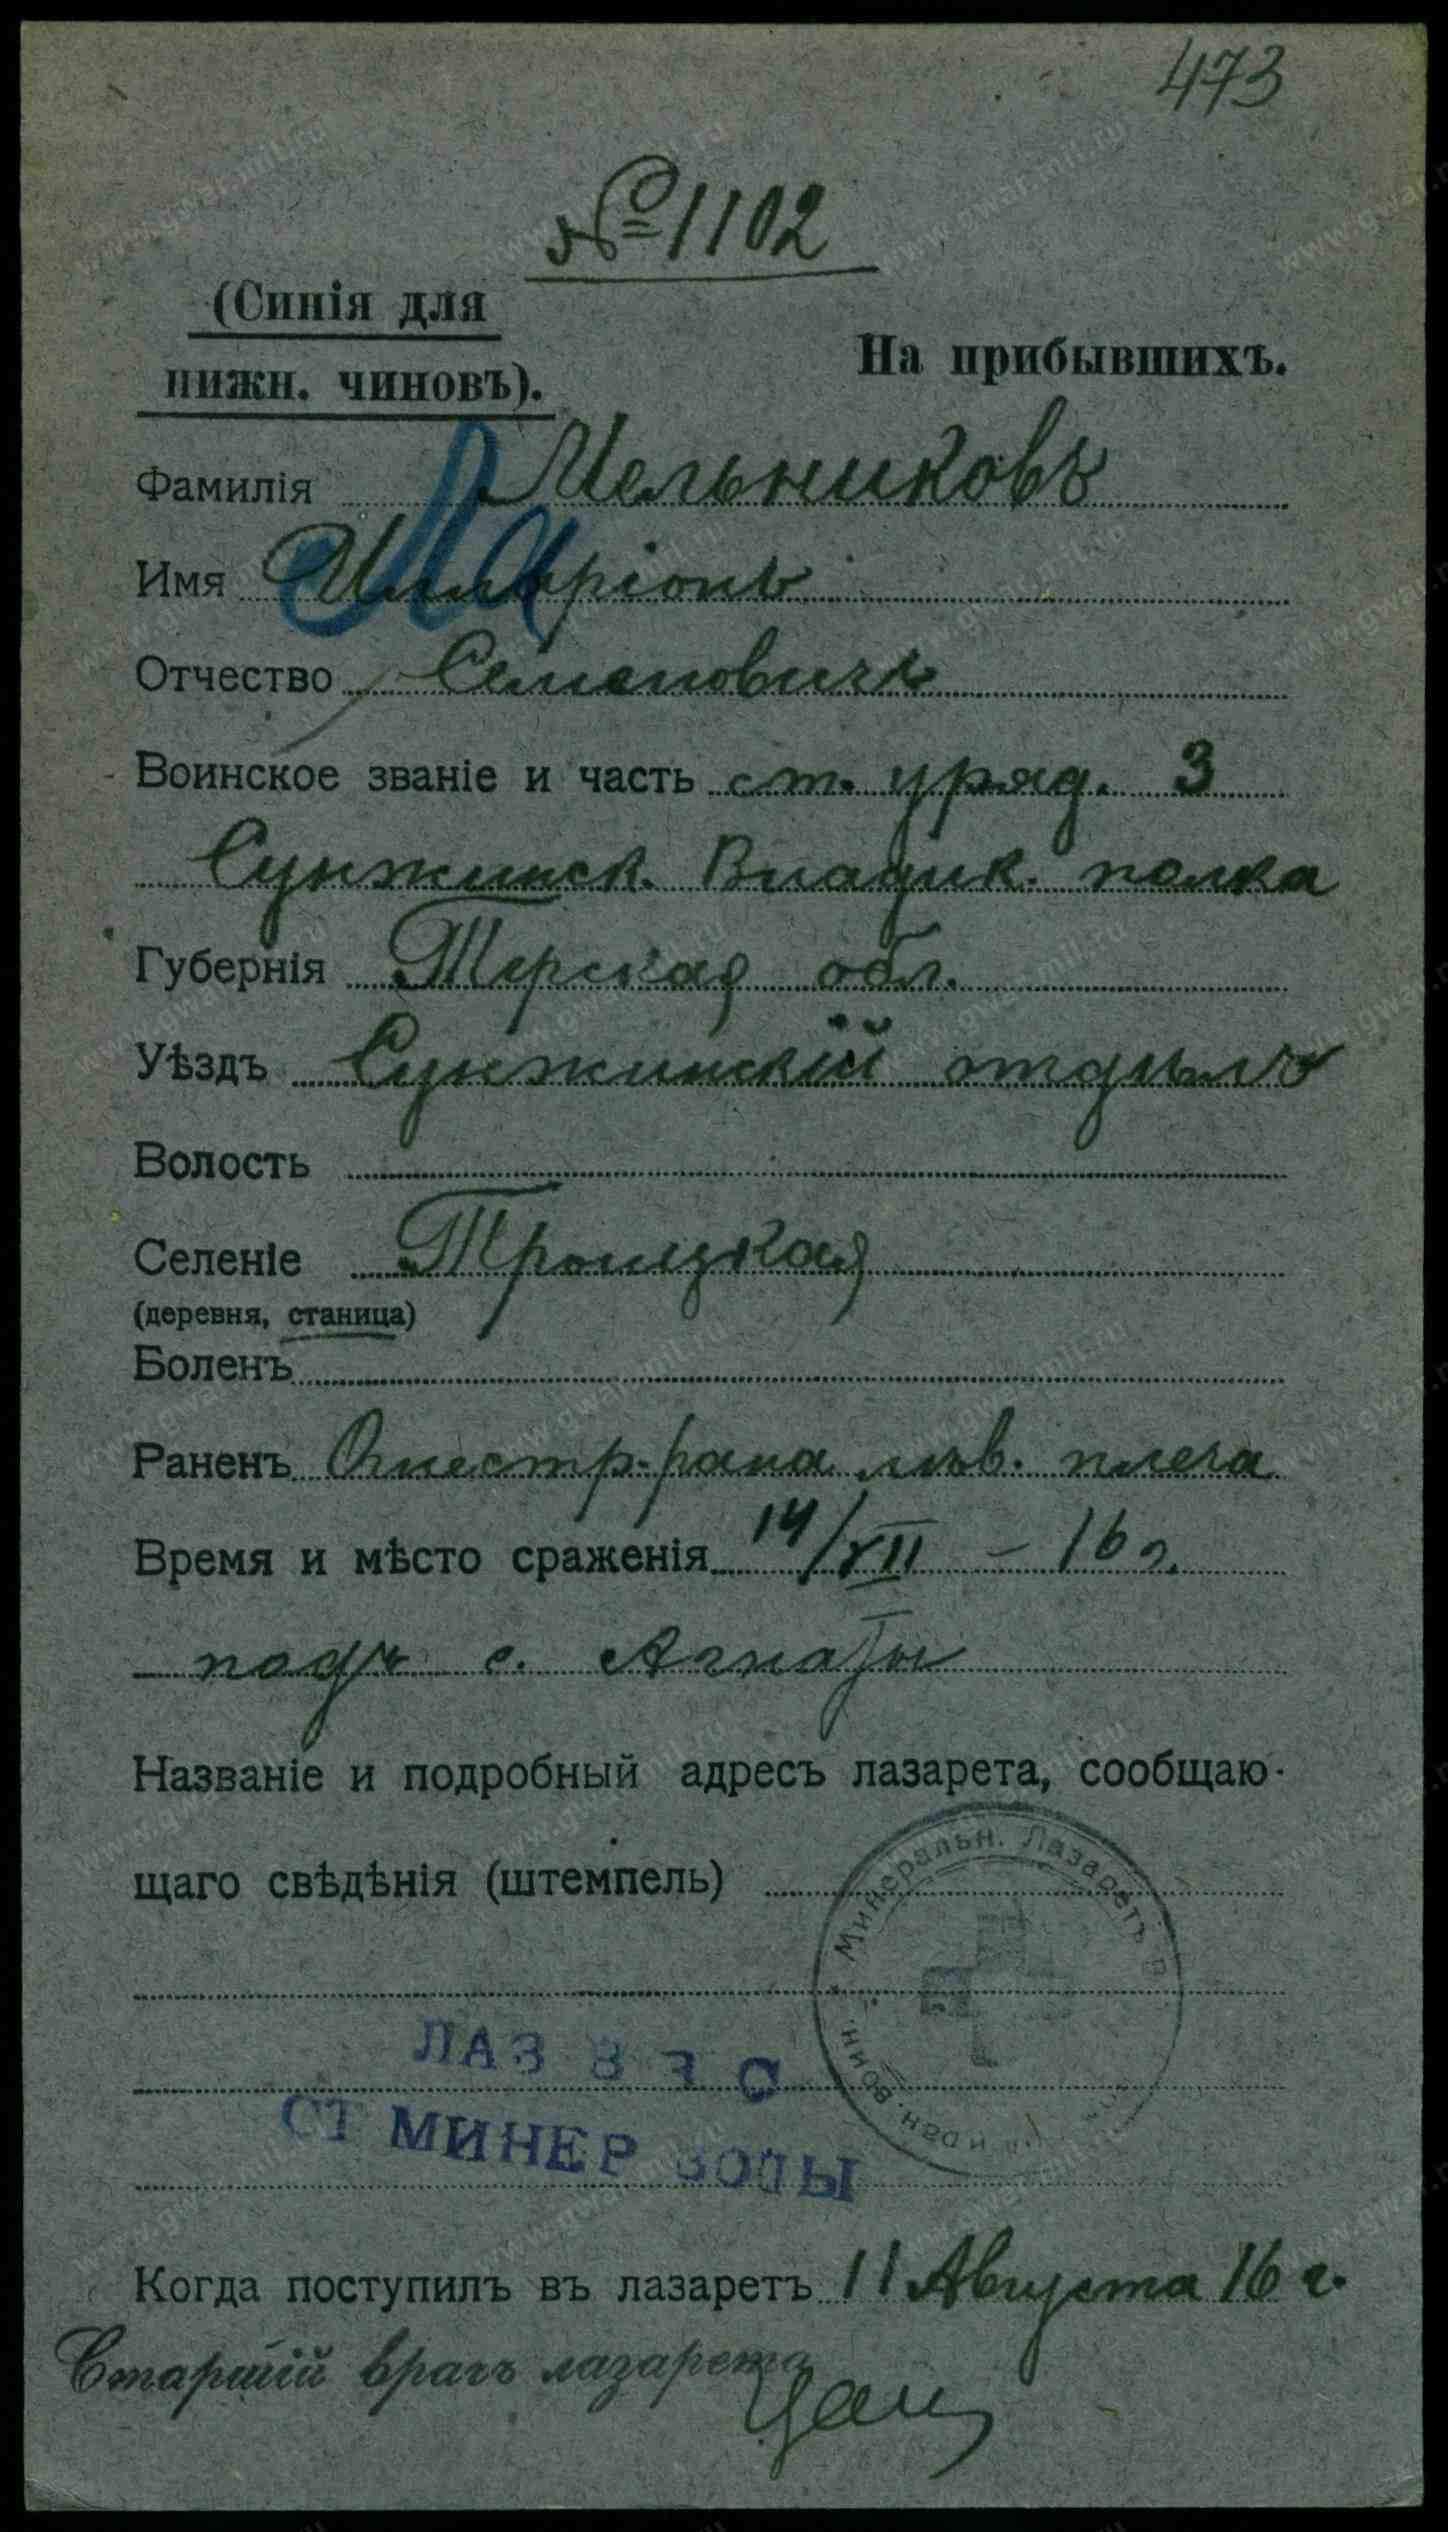 473
№ 1102
(Синія для
нижн. чиновъ).
На прибывшихъ.
Фамилія Мельниковъ
Ме
Имя Илларіонъ
Отчество Семеновичъ
Воинское званіе и часть ст. уряд. 3
Сунжинск. Владик. полка
Губернія Терская обл.
Уѣздъ Сунжинскій отдѣлъ
Волость
Селеніе Троицкая
(деревня, станица)
Боленъ
Раненъ Огнестр. рана лѣв. плеча
Время и мѣсто сраженія 14/VII - 16 г.
подъ с.
Названіе и подробный адресъ лазарета, сообщаю-
щаго свѣдѣнія (штемпель)
Минеральн. Лазаретъ
ран. воин.
ЛАЗ В З С
СТ МИНЕР ВОДЫ
Когда поступилъ въ лазаретъ 11 Августа 16 г.
Старшій врачъ лазарета